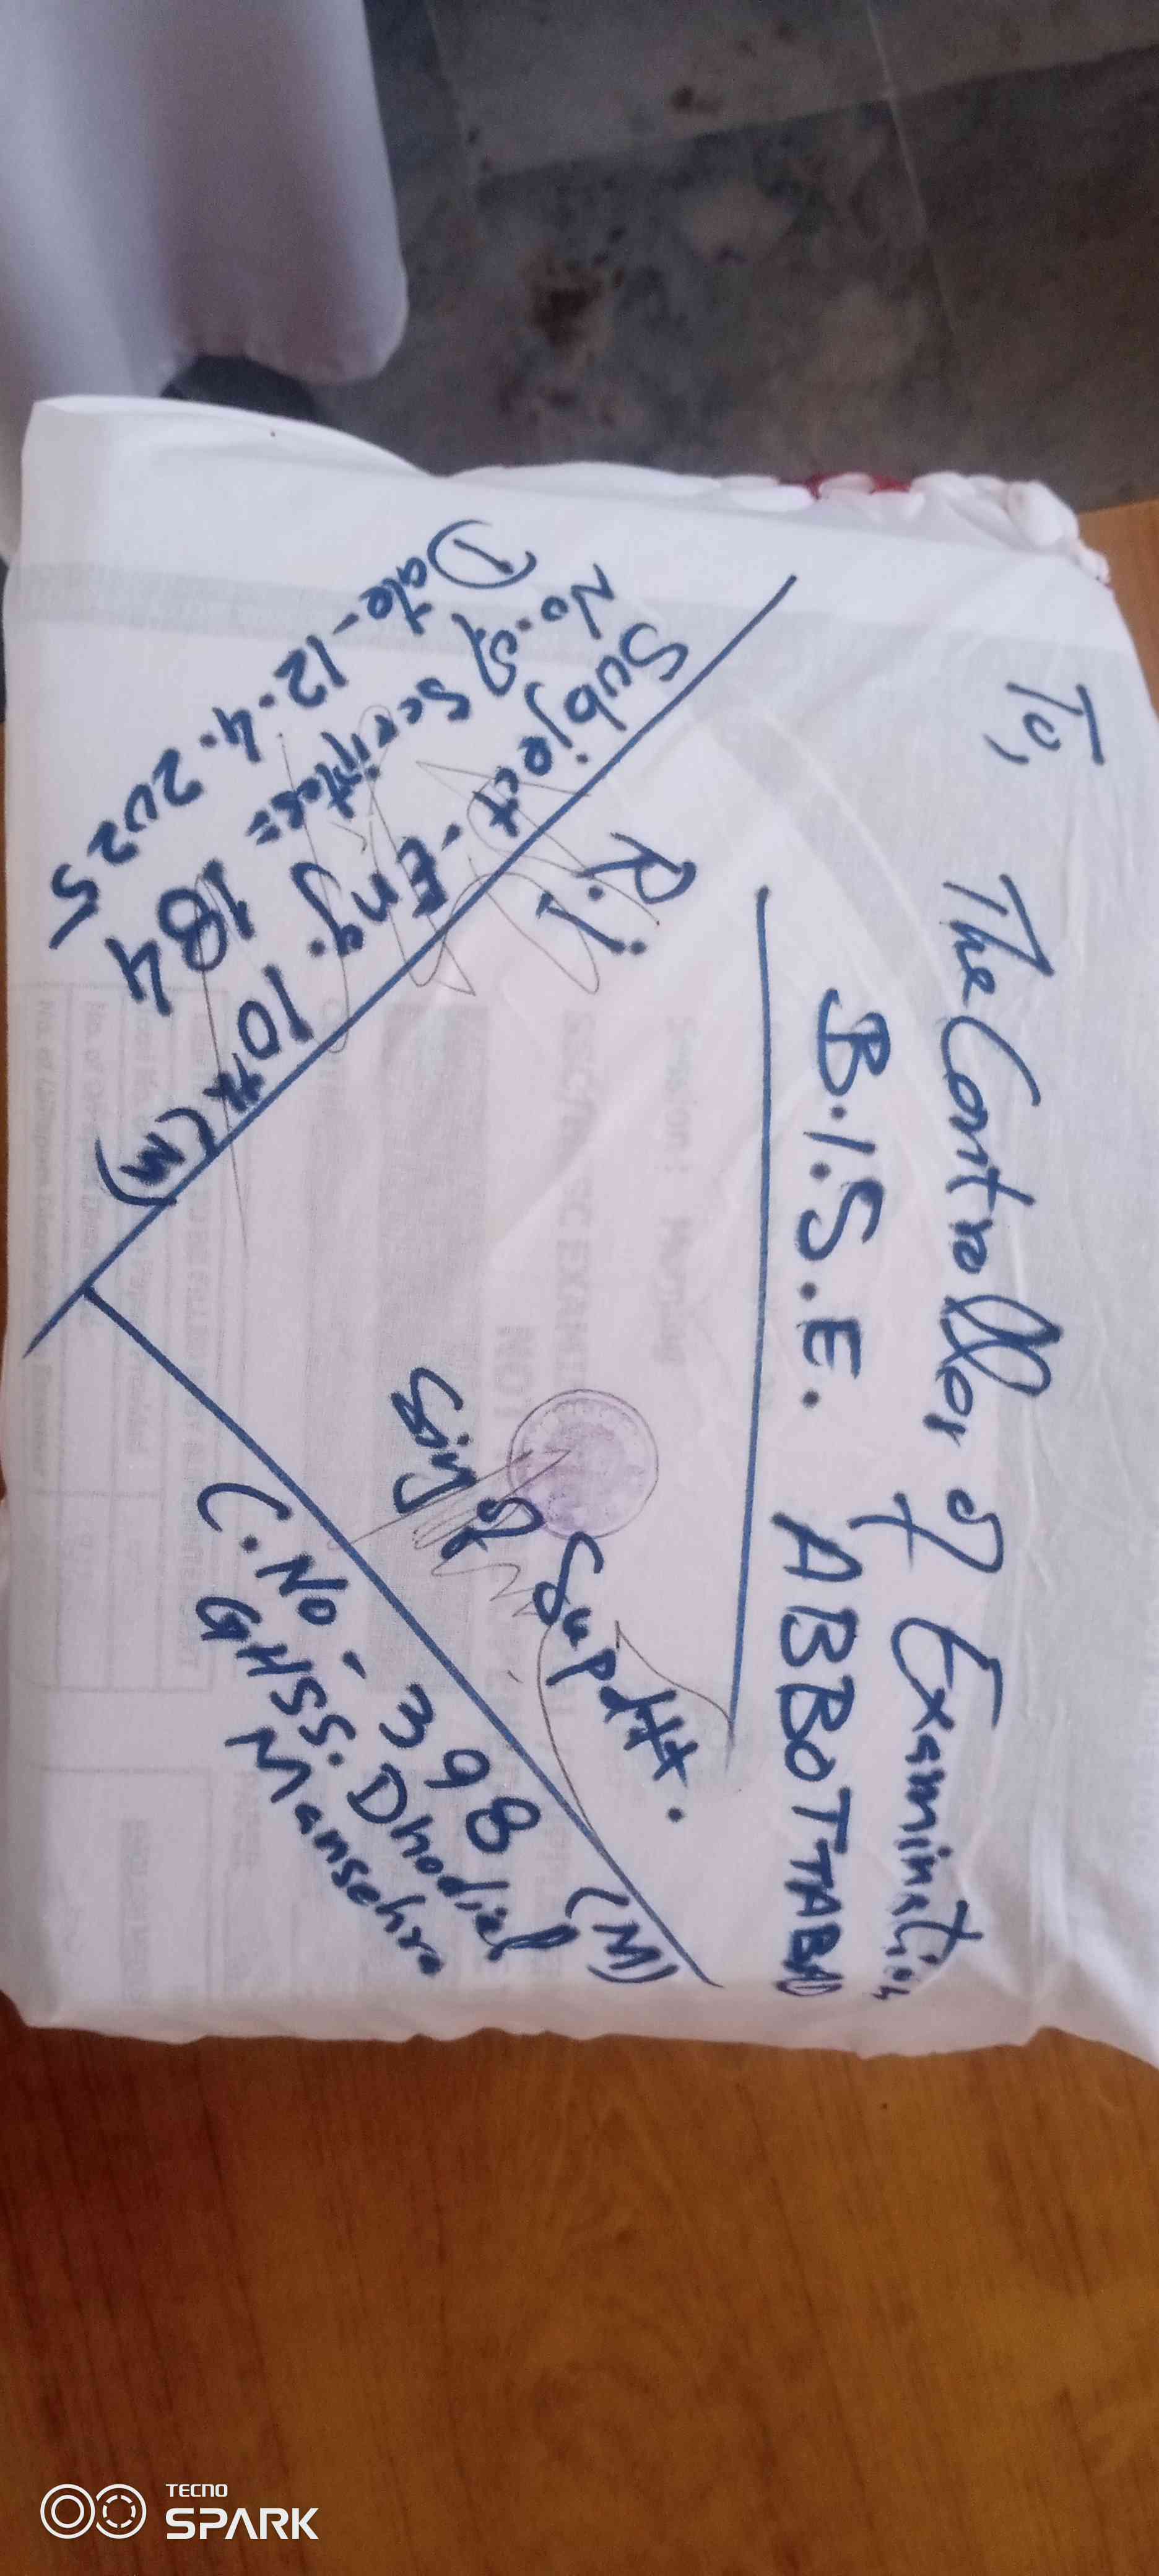 To,
The Controller of Examination
B.I.S.E. ABBOTTABAD
R.I.
Subject - Eng. 10th (M)
No. of Scriptes = 184
Date - 12.4.2025
Sing of Supdtt.
C.No - 398 (M)
GHSS. Dhodial
Mansehra
TECNO
SPARK